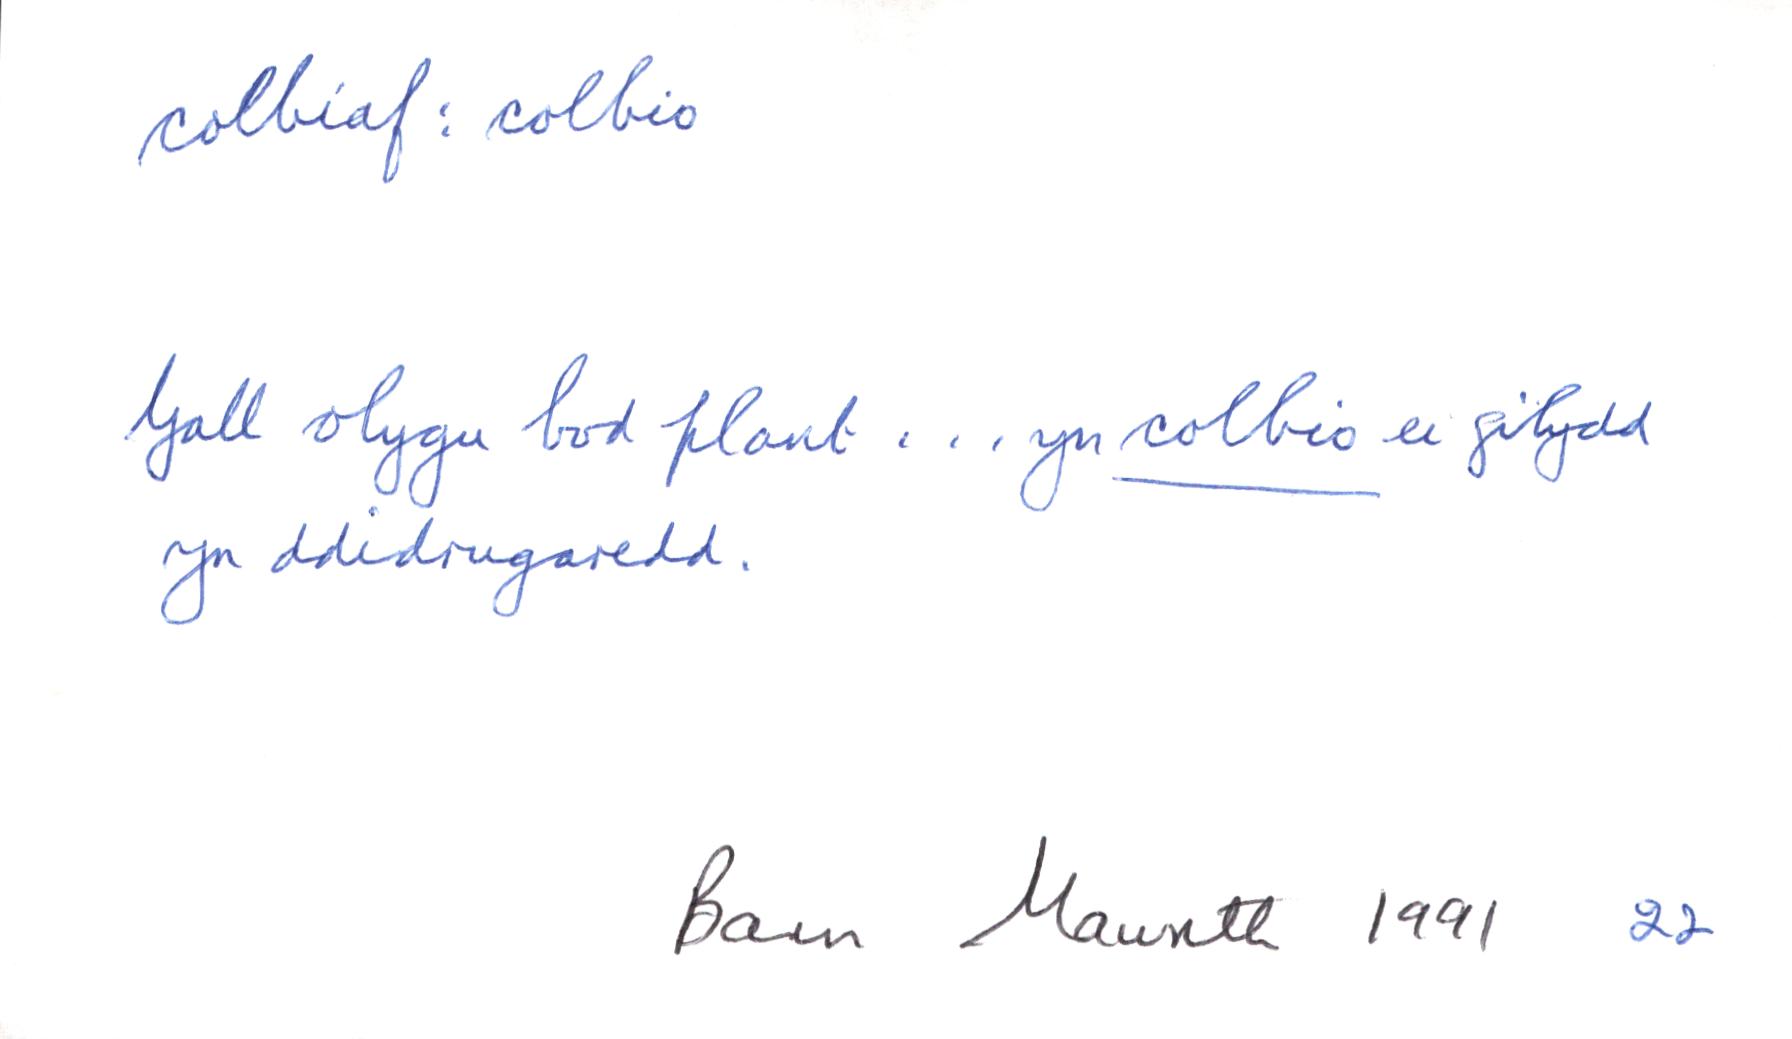 colbiaf: colbio
Gall olygu bod plant . . . yn colbio ei gilydd
yn ddidrugaredd.
Barn Mawrth 1991 22